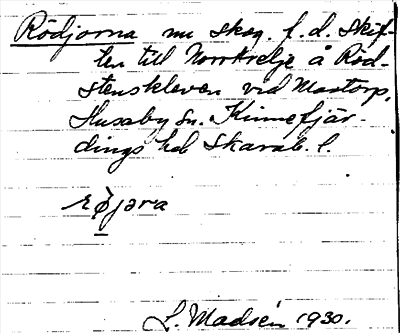 Rödjorna nu skog. f. d. skif-
ten till Norrkvelje å Röd-
stensklevan vid Mastorp,
Husaby sn. Kinnefjär-
dings hd Skarab. l.
røjɑra
L. Madsén 1930.